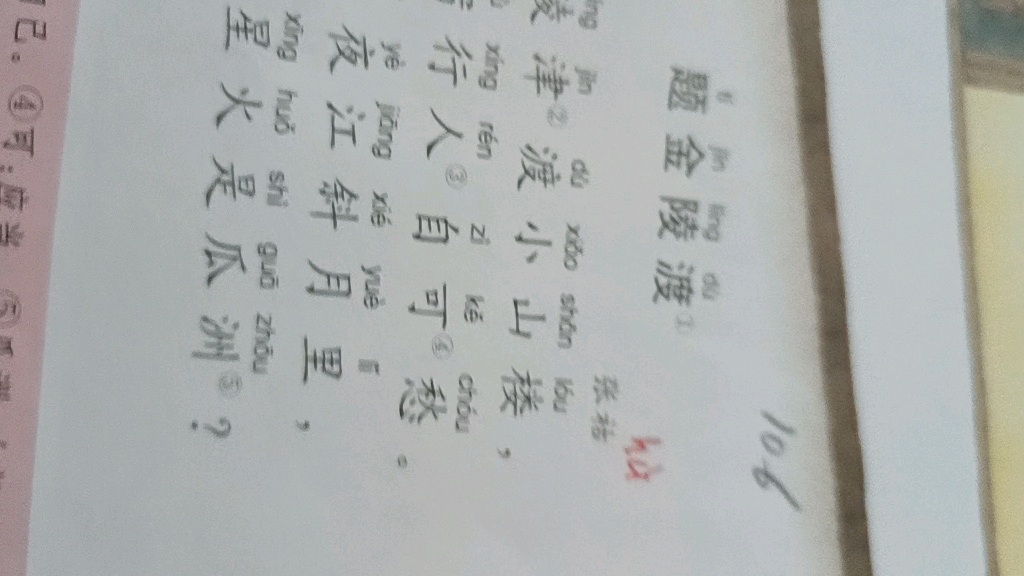 106
tí jīn líng dù
题金陵渡①
张祜
hù
líng jīn dù xiǎo shān lóu
陵津②渡小山楼，
xíng rén zì kě chóu
行人③自可④愁。
yè jiāng xié yuè lǐ
夜江斜月里，
xīng huǒ shì guā zhōu
星火是瓜洲⑤？
己。④可：应当